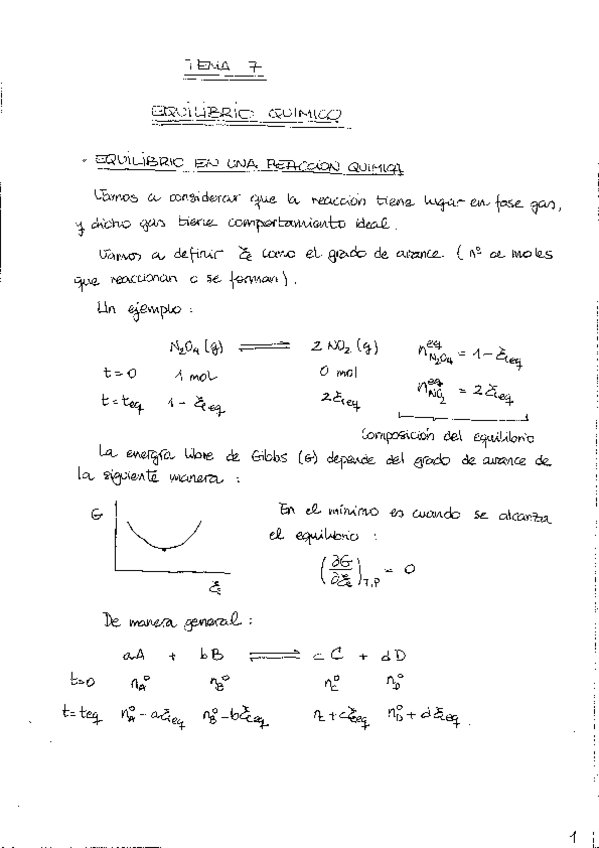 TEMA 7
EQUILIBRIO QUIMICO
- EQUILIBRIO EN UNA REACCION QUIMICA
Vamos a considerar que la reacción tiene lugar en fase gas,
y dicho gas tiene comportamiento ideal.
Vamos a definir ξ como el grado de avance. (nº de moles
que reaccionan o se forman).
Un ejemplo:
N₂O₄ (g) ⇌ 2 NO₂ (g) n^eq_N₂O₄ = 1 - ξeq
t=0 1 mol 0 mol n^eq_NO₂ = 2ξeq
t=teq 1 - ξeq 2ξeq
Composición del equilibrio
La energía libre de Gibbs (G) depende del grado de avance de
la siguiente manera:
G
ξ
En el mínimo es cuando se alcanza
el equilibrio:
(∂G/∂ξ)T,P = 0
De manera general:
aA + bB ⇌ cC + dD
t=0 n°A n°B n°C n°D
t=teq n°A - aξeq n°B - bξeq n + cξeq n°D + dξeq.
1